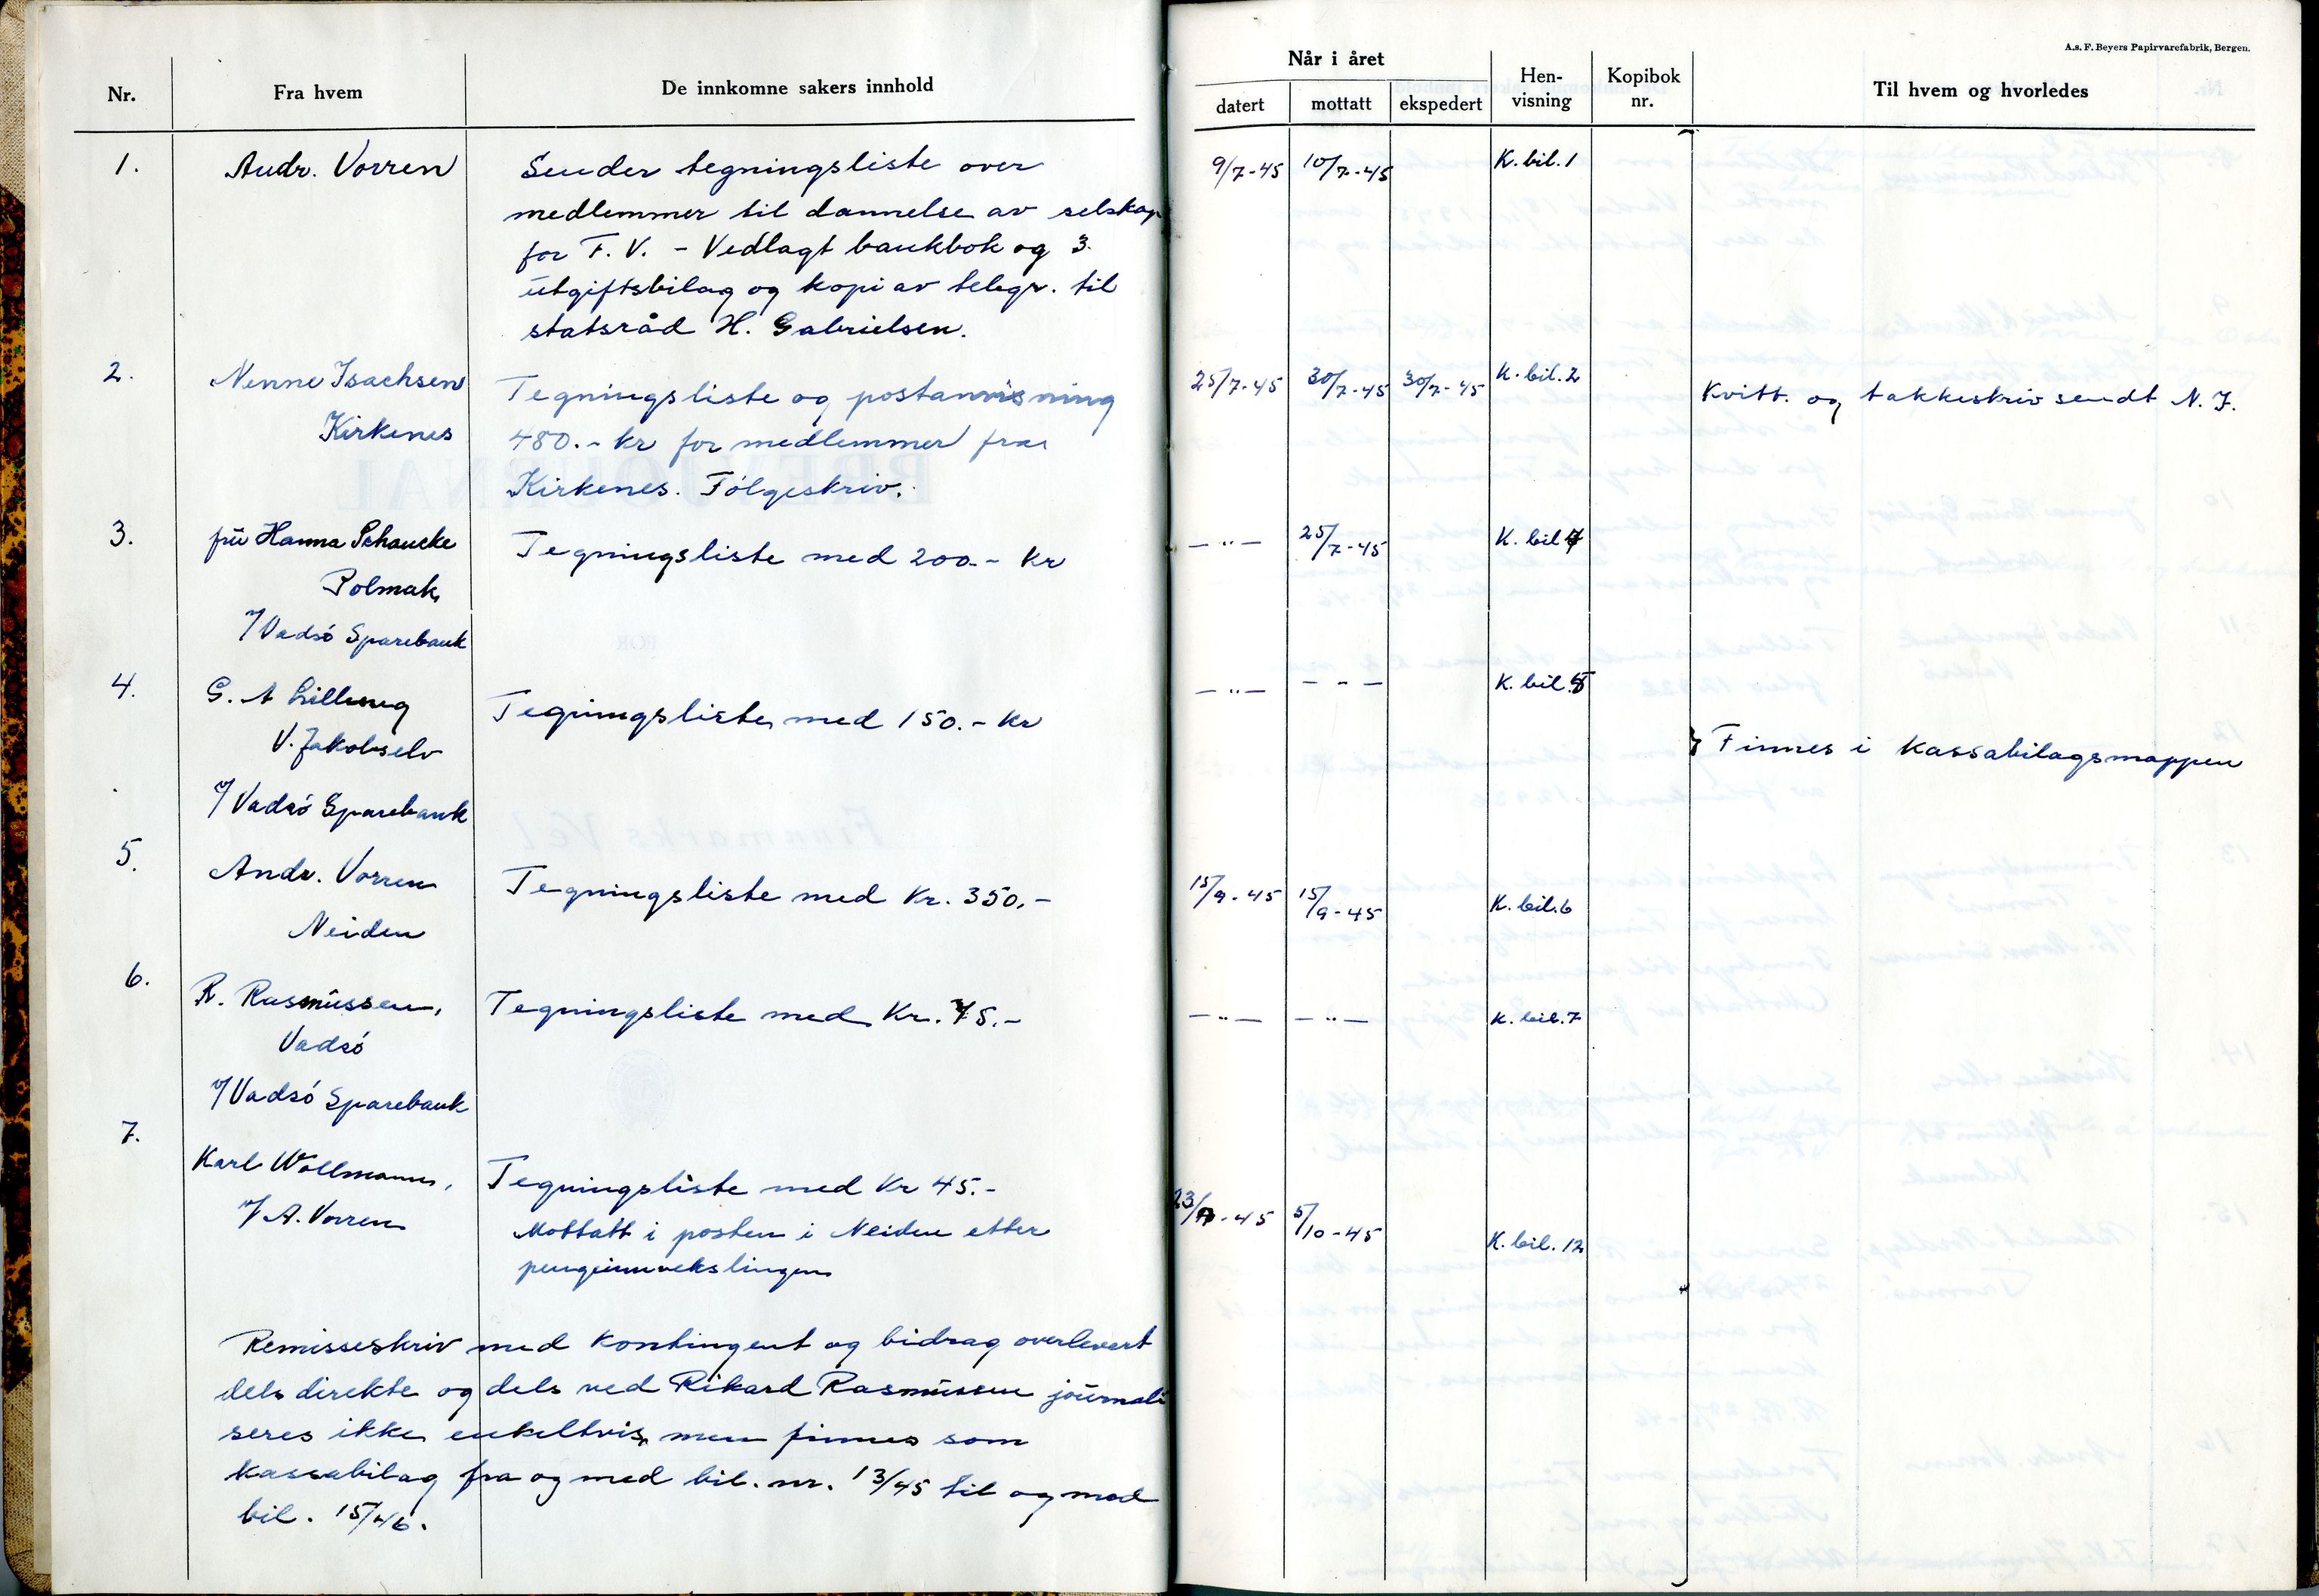 Nr.
Fra hvem
De innkomne sakers innhold
1.
Andr. Vorren
Sender tegningsliste over
medlemmer til dannelse av selskap
for F. V. - Vedlagt bankbok og 3
utgiftsbilag og kopi av telegr. til
statsråd H. Gabrielsen.
2.
Nenne Isachsen
Kirkenes
Tegningsliste og postanvisning
480.- kr for medlemmer fra
Kirkenes. Følgeskriv.
3.
fru Hanna Schancke
Polmak
v/ Vadsö Sparebank
Tegningsliste med 200.- kr
4.
G. A Lilleng
V. Jakobselv
v/ Vadsö Sparebank
Tegningsliste med 150.- kr
5.
Andr. Vorren
Neiden
Tegningsliste med kr. 350.-
6.
R. Rasmussen,
Vadsö
v/ Vadsö Sparebank
Tegningsliste med kr. 75.-
7.
Karl Wollmann,
v/ A. Vorren
Tegningsliste med kr 45.-
Mottatt i posten i Neiden etter
pengeinnvekslingen
Remisseskriv med kontingent og bidrag overlevert
dels direkte og dels ved Rikard Rasmussen journali
seres ikke enkeltvis, men finnes som
kassabilag fra og med bil. nr. 13/45 til og med
bil. 15/46.
A.s. F. Beyers Papirvarefabrik, Bergen.
Når i året
datert
mottatt
ekspedert
Hen-
visning
Kopibok
nr.
Til hvem og hvorledes
9/7-45 10/7-45 K. bil. 1
25/7-45 30/7-45 30/7-45 K. bil. 2 Kvitt. og takkeskriv sendt N. I.
— " — 25/7-45 K. bil 4
— " — — " — K. bil. 5
} Finnes i kassabilagsmappen
15/9-45 15/9-45 K. bil. 6
— " — — " — K. bil. 7
23/ -45 5/10-45 K. bil. 12